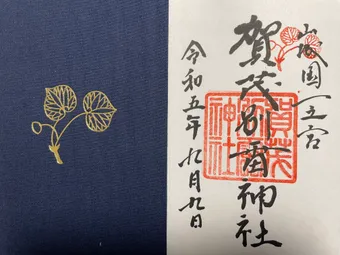 山城國一之宮
賀茂別雷神社
賀茂別雷神社
令和五年九月九日